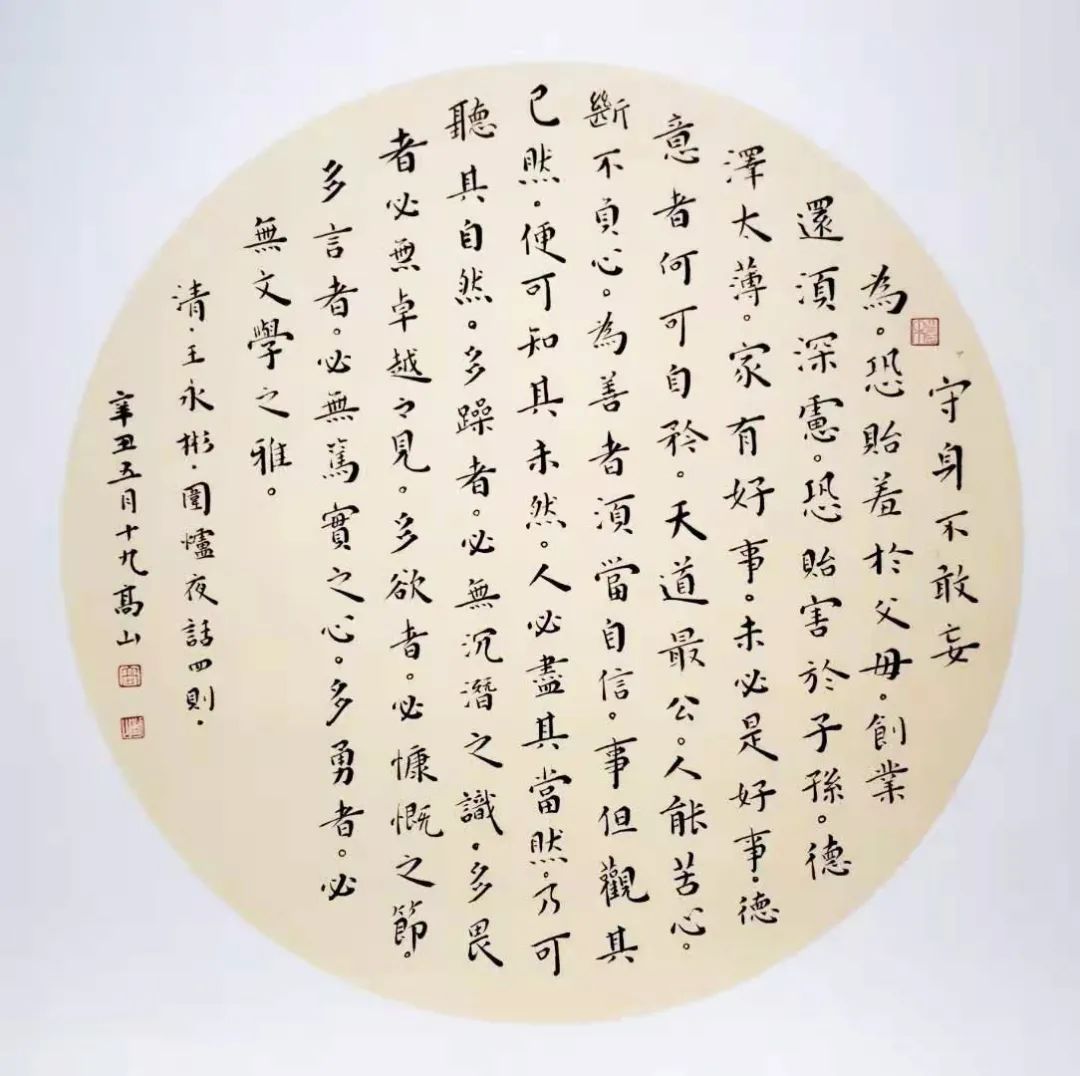 守身不敢妄
為。恐貽羞於父母。創業
還須深慮。恐貽害於子孫。德
澤太薄。家有好事。未必是好事。德
意者何可自矜。天道最公。人能苦心。
斷不負心。為善者須當自信。事但觀其
已然。便可知其未然。人必盡其當然。乃可
聽其自然。多躁者。必無沉潛之識。多畏
者必無卓越之見。多欲者。必慷慨之節。
多言者。必無篤實之心。多勇者。必
無文學之雅。
清·王永彬·圍爐夜話四則。
辛丑五月十九高山